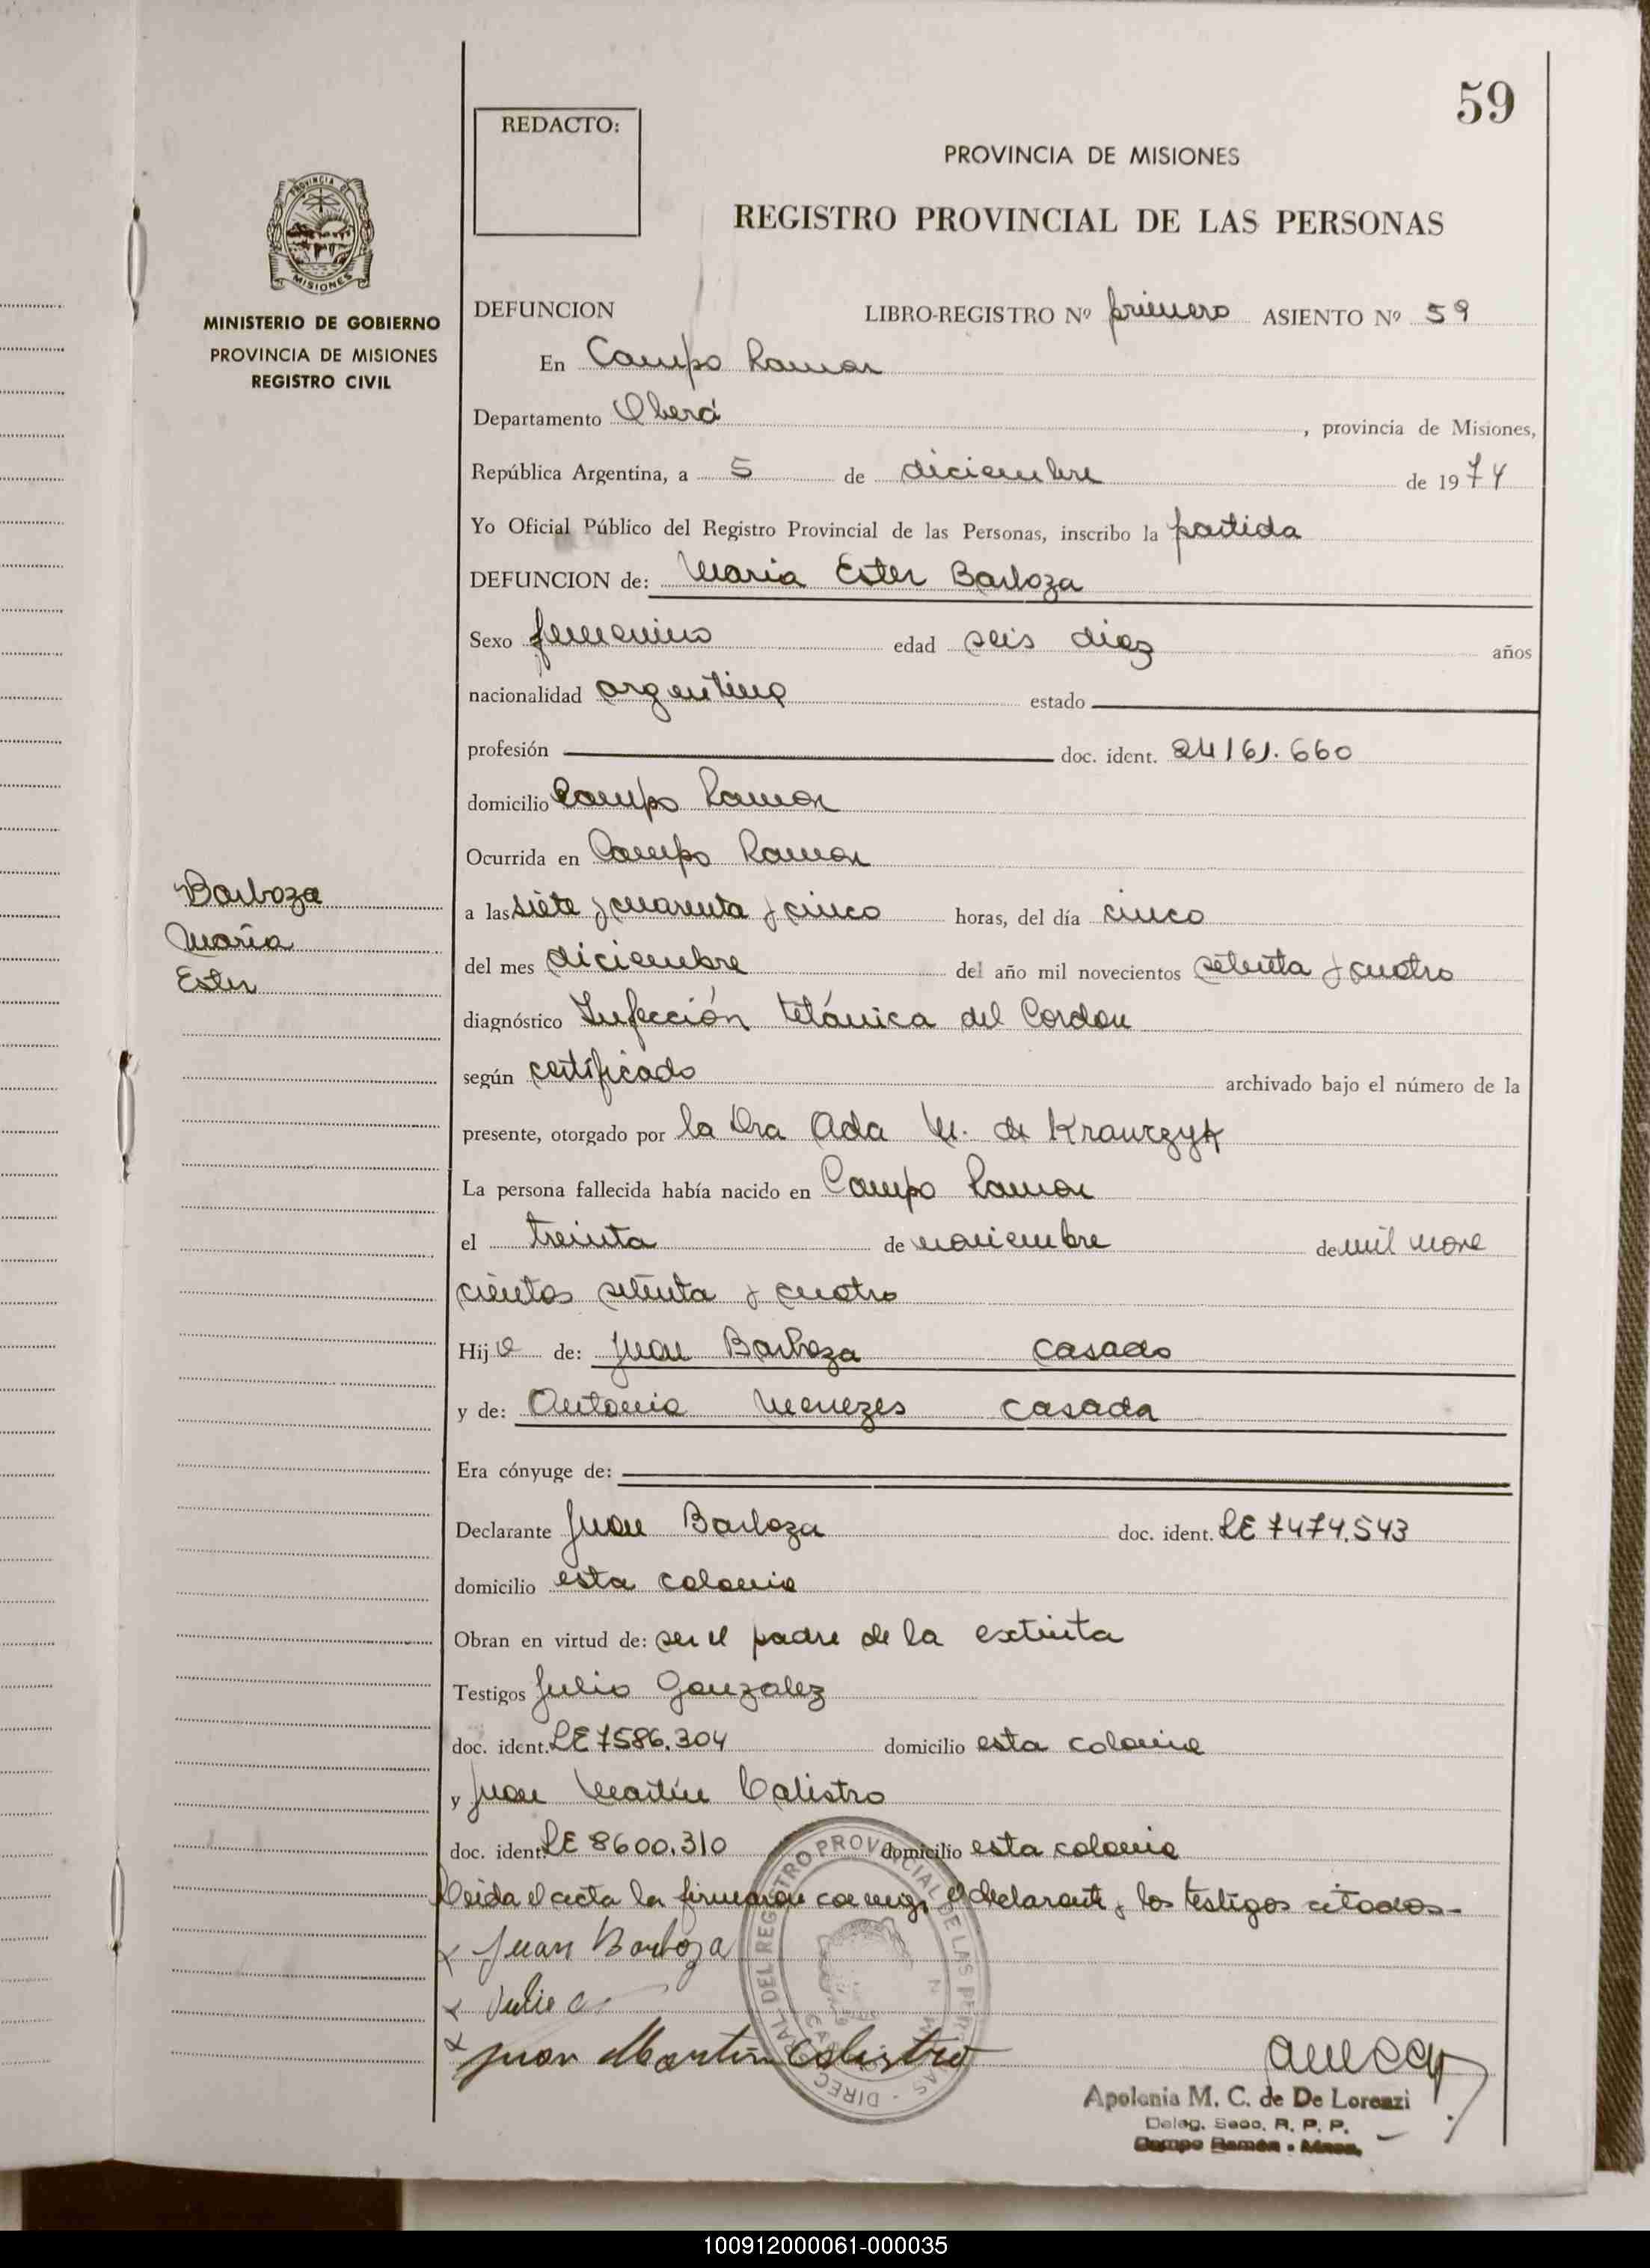 59
REDACTO:
PROVINCIA DE MISIONES
REGISTRO PROVINCIAL DE LAS PERSONAS
PROVINCIA DE
MISIONES
MINISTERIO DE GOBIERNO
PROVINCIA DE MISIONES
REGISTRO CIVIL
DEFUNCION LIBRO-REGISTRO Nº primero ASIENTO Nº 59
En Campo Ramon
Departamento Oberá, provincia de Misiones,
República Argentina, a 5 de diciembre de 1974
Yo Oficial Público del Registro Provincial de las Personas, inscribo la partida
DEFUNCION de: Maria Ester Barboza
Sexo femenino edad seis dias años
nacionalidad argentina estado
profesión doc. ident. 24161.660
domicilio Campo Ramon
Ocurrida en Campo Ramon
Barboza
María
Ester
a las siete y cuarenta y cinco horas, del día cinco
del mes diciembre del año mil novecientos setenta y cuatro
diagnóstico Infección tetánica del Cordon
según certificado archivado bajo el número de la
presente, otorgado por la Dra Ada M. de Krawczyk
La persona fallecida había nacido en Campo Ramon
el treinta de noviembre de mil nove
cientos setenta y cuatro
Hija de: Juan Barboza casado
y de: Antonia Menezes casada
Era cónyuge de:
Declarante Juan Barboza doc. ident. LE 7474.543
domicilio esta colonia
Obran en virtud de: ser el padre de la extinta
Testigos Julio Gonzalez
doc. ident. LE 7586.304 domicilio esta colonia
y Juan Martin Calistro
doc. ident. LE 8600.310 domicilio esta colonia
Leida el acta la firmaron conmigo el declarante y los testigos citados-
x Juan Barboza
x Julio G.
x Juan Martin Calistro
DIRECC PROVINCIAL DEL REGISTRO PROVINCIAL DE LAS PERSONAS
Apolonia M. C. de De Lorenzi
Deleg. Secc. R. P. P.
Campo Ramón - Mnes.
100912000061-000035